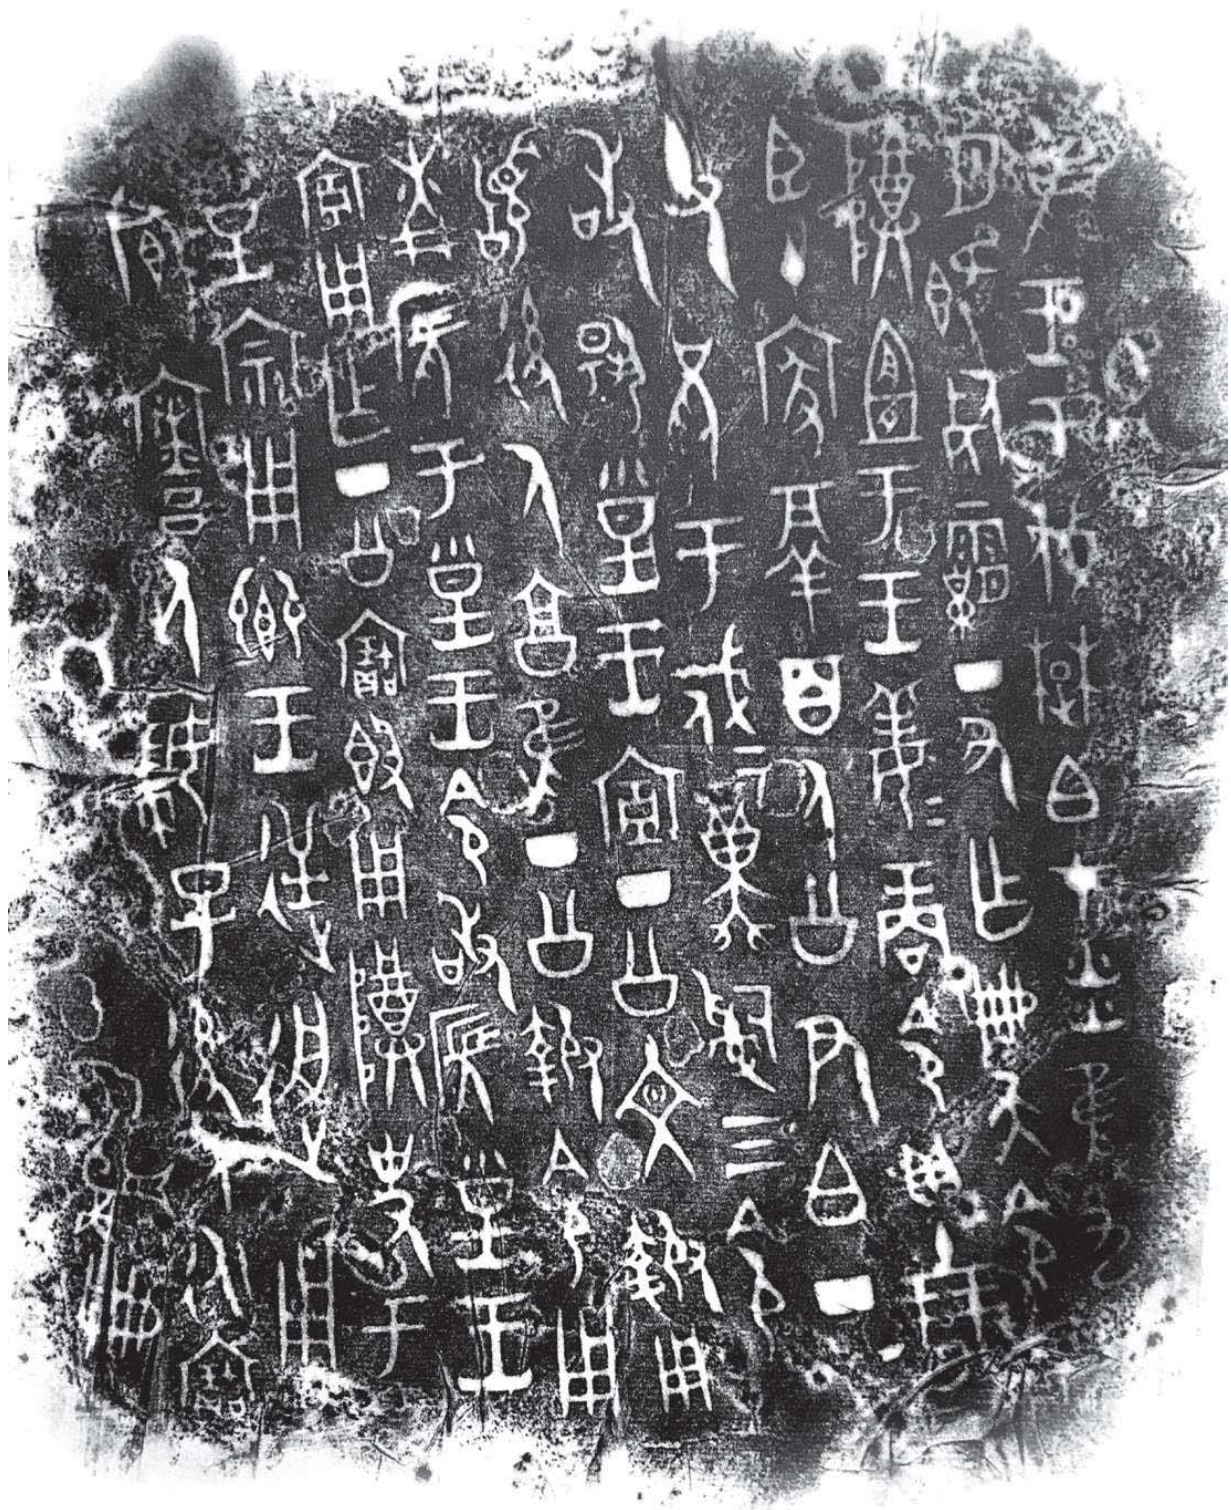 隹王于伐楚白才炎隹九
月既死霸丁丑乍冊夨令
尊宜于王姜姜商令貝十朋
臣十家鬲百人公尹白丁
父兄于戍戍冀𤔲乞令
敢揚皇王宣丁公文報用
𩒨後人享隹丁公報令用
𢍰揚于皇王令敢揚皇王
宣用乍丁公寶簋用尊史于
皇宗用鄉王逆造用
匓寮人婦子後人永寶
冊